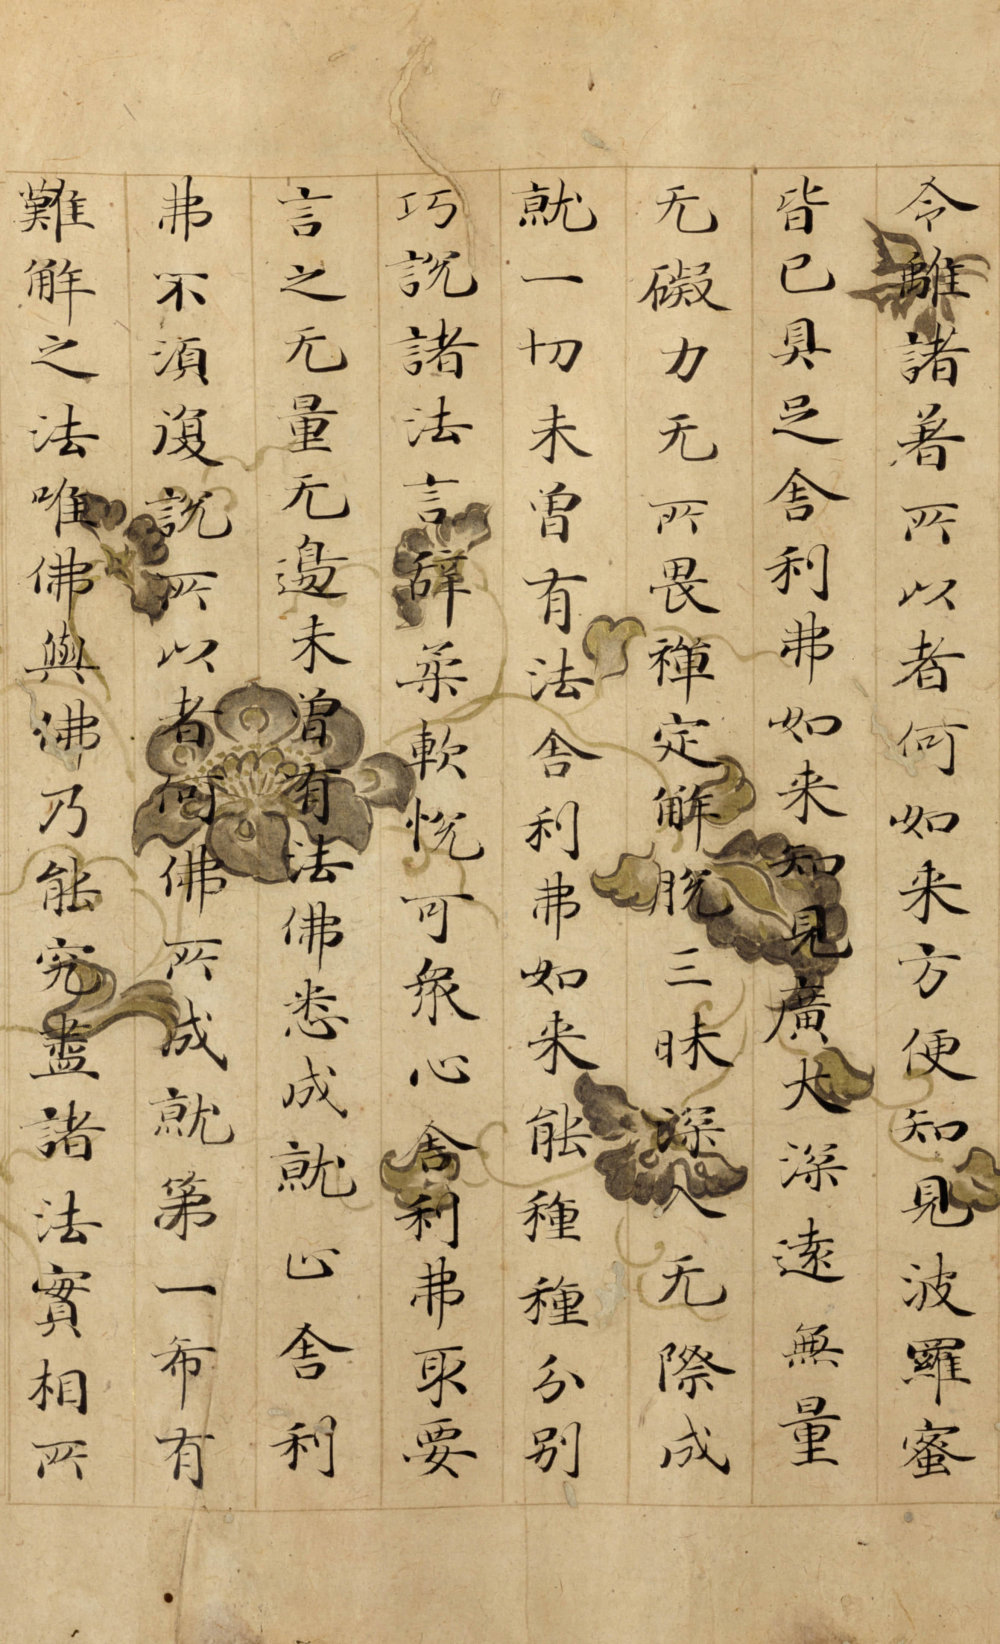 令離諸著所以者何如来方便知見波羅蜜
皆已具足舎利弗如来知見廣大深遠無量
无礙力无所畏禅定解脱三昧深入无際成
就一切未曽有法舎利弗如来能種種分别
巧說諸法言辞柔軟悦可衆心舎利弗取要
言之无量无邊未曽有法佛悉成就止舎利
弗不須復説所以者何佛所成就第一希有
難解之法唯佛與佛乃能究盡諸法實相所